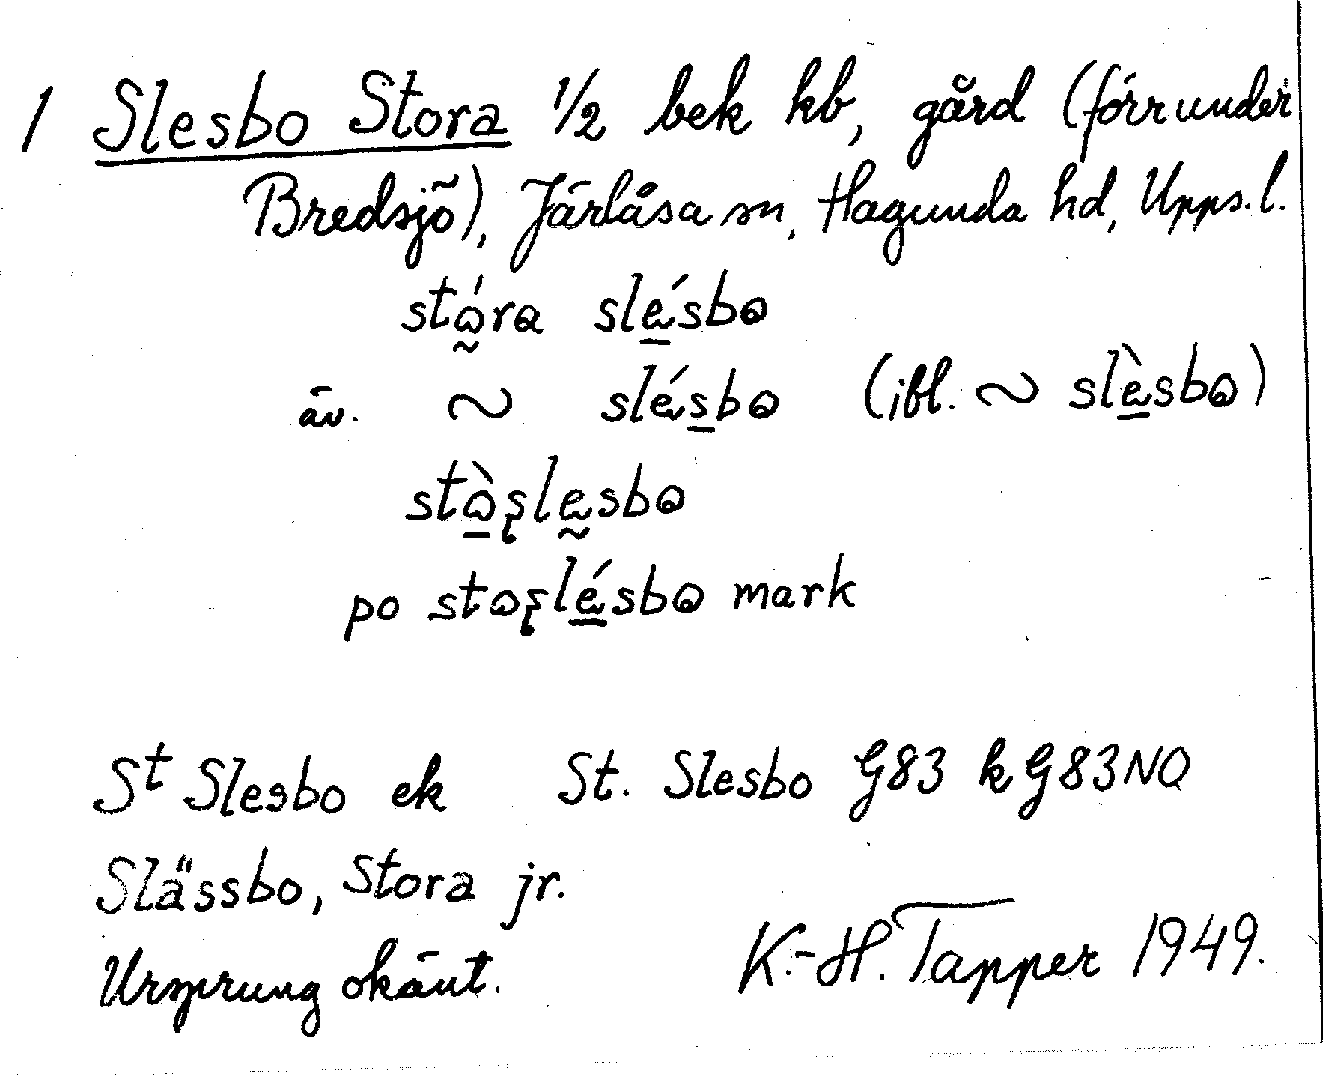 1 Slesbo Stora 1/2 bek kb, gård (förr under
Bredsjö), Järlåsa sn, Hagunda hd, Upps.l.
stɷ̰́ra slé̱sbɷ
äv. ~ slés̱bɷ (ibl. ~ slè̱sbɷ)
stɷ̱̀ʂlḛsbɷ
po stɷʂlé̱sbɷ mark
St Slesbo ek St. Slesbo G83 k G83NO
Slässbo, Stora jr.
Ursprung okänt.
K.-H. Tapper 1949.